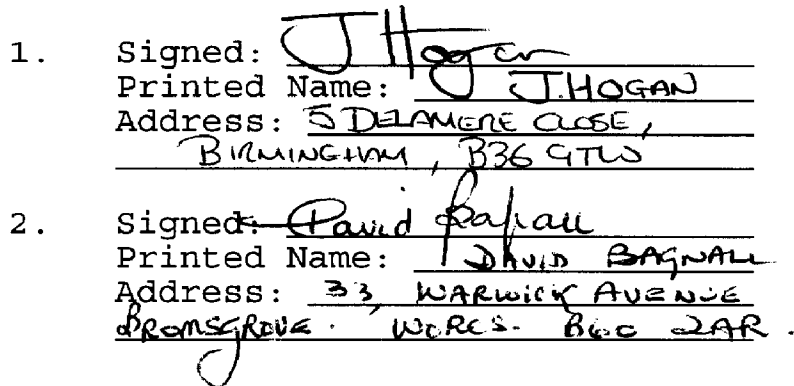 1. Signed: J Hogan
Printed Name: J. HOGAN
Address: 5 DELAMERE CLOSE,
BIRMINGHAM, B36 9TW
2. Signed: David Bagnall
Printed Name: DAVID BAGNALL
Address: 33, WARWICK AVENUE
BROMSGROVE. WORCS. B60 2AR.